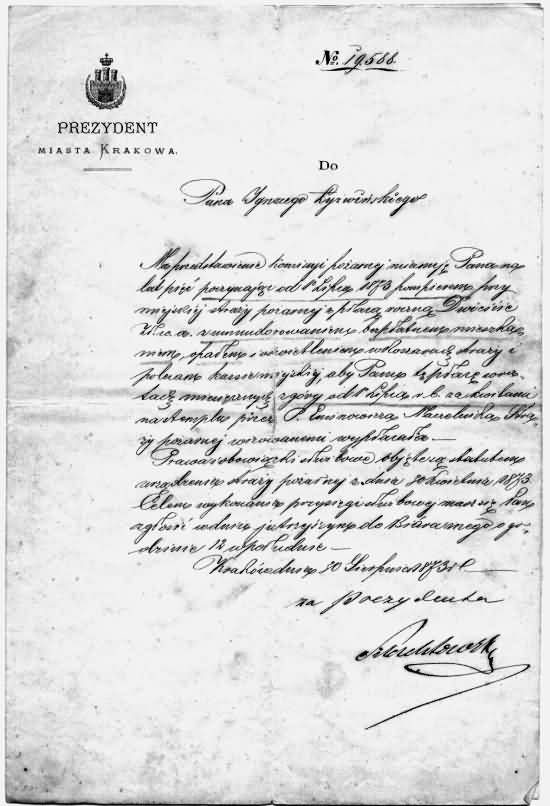 No. 19588
PREZYDENT
MIASTA KRAKOWA.
Do
Pana Ignacego Łyzwińskiego
Na przedstawienie komisyi pożarnej mianuję Pana na
lat pięć począwszy od 1 Lipca 1873 pompierem przy
miejskiej straży pożarnej z płacą roczną Dwieście
złr. w. a. z umundurowaniem, bezpłatnem mieszka
niem, opałem i oświetleniem w koszarach straży i
polecam kassie miejskiej, aby Panu tę płacę w
ratach miesięcznych z góry od 1 Lipca r. b. za kwitami
na stemplu przez P. Eminowicza Naczelnika Stra
ży pożarnej wypłacała.
Prawa i obowiązki służbowe objęte są statutem
urządzenia straży pożarnej z dnia 30 Kwietnia 1873.
Celem wykonania przysięgi służbowej masz się Pan
zgłosić w dniu jutrzejszym do biura mego o go-
dzinie 12 w południe
Kraków dnia 20 Sierpnia 1873 r.
za Prezydenta